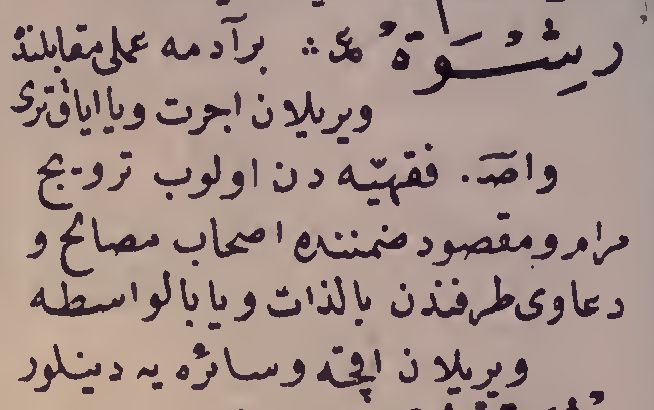 رِشْوَةٌ ع :: بر آدمه عملی مقابلنده
ویریلان اجرت ویا ایاق‌تری
واصـ . فقهیّه دن اولوب ترویج
مرام ومقصود ضمننده اصحاب مصالح و
دعاوی طرفندن بالذات ویا بالواسطه
ویریلان اقچه وسائره یه دینلور